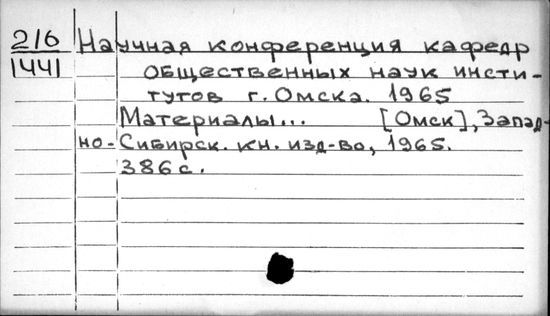 216 Научная конференция кафедр
1441 общественных наук инсти-
тутов г. Омска. 1965
Материалы... [Омск], Запад-
но-Сибирск. кн. изд-во, 1965.
386 с.